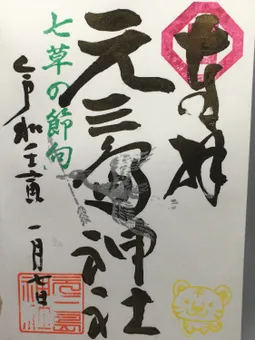 奉拝
元三島神社
七草の節句
令和壬寅 一月七日
元三島神社